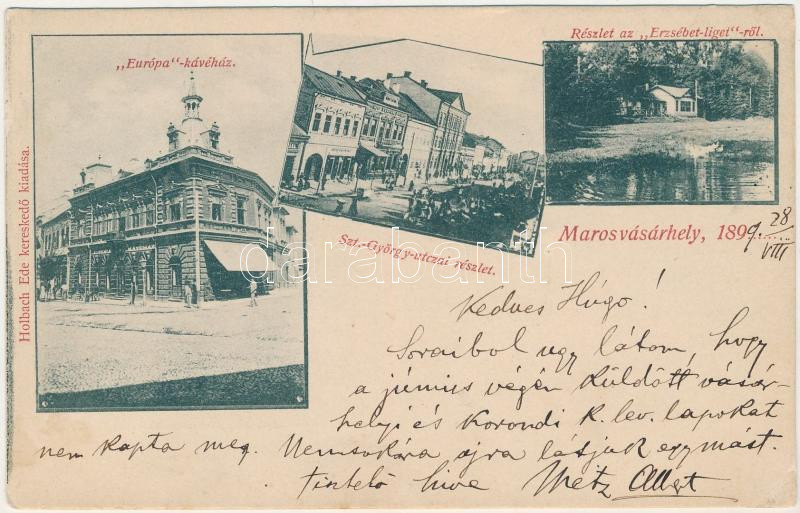 „Európa"-kávéház.
Szt.-György-utczai részlet.
Részlet az „Erzsébet-liget"-ről.
Holbach Ede kereskedő kiadása.
Marosvásárhely, 1899. 28/VIII
darabanth
Kedves Húgo!
Soraibol ugy látom, hogy
a június végén küldött vásár-
helyi és Korondi k. lev. lapokat
nem kapta meg. Nemsokára ujra látjuk egymást.
Tisztelő hive Metz